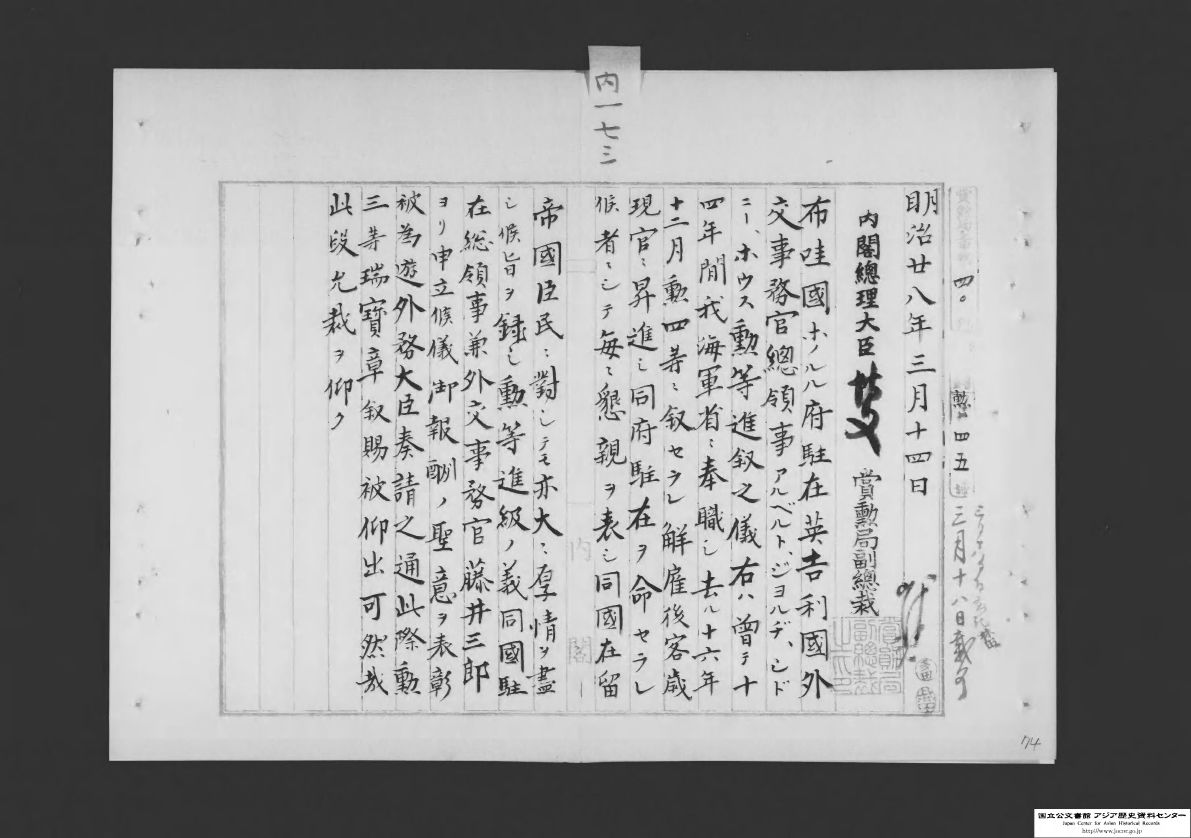 内一七三
四
勲四五
三月十八日裁可
明治廿八年三月十四日
内閣總理大臣
賞勲局副總裁
布哇國ホノルル府駐在英吉利國外
交事務官總領事アルベルト、ジヨルヂ、シド
ニー、ホウス勲等進叙之儀右ハ曽テ十
四年間我海軍省ニ奉職シ去ル十六年
十二月勲四等ニ叙セラレ解雇後客歳
現官ニ昇進シ同府駐在ヲ命セラレ
候者ニシテ毎ニ懇親ヲ表シ同國在留
内閣
帝國臣民ニ對シテモ亦大ニ厚情ヲ盡
シ候旨ヲ録シ勲等進級ノ義同國駐
在総領事兼外交事務官藤井三郎
ヨリ申立候儀御報酬ノ聖意ヲ表彰
被為遊外務大臣奏請之通此際勲
三等瑞寶章叙賜被仰出可然哉
此段允裁ヲ仰ク
174
国立公文書館 アジア歴史資料センター
Japan Center for Asian Historical Records
http://www.jacar.go.jp